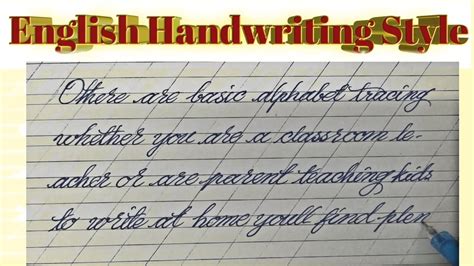 English Handwriting Style
Othere are basic alphabet tracing
whether you are a classroom te-
acher or are parent teaching kids
to write at home youll find plen